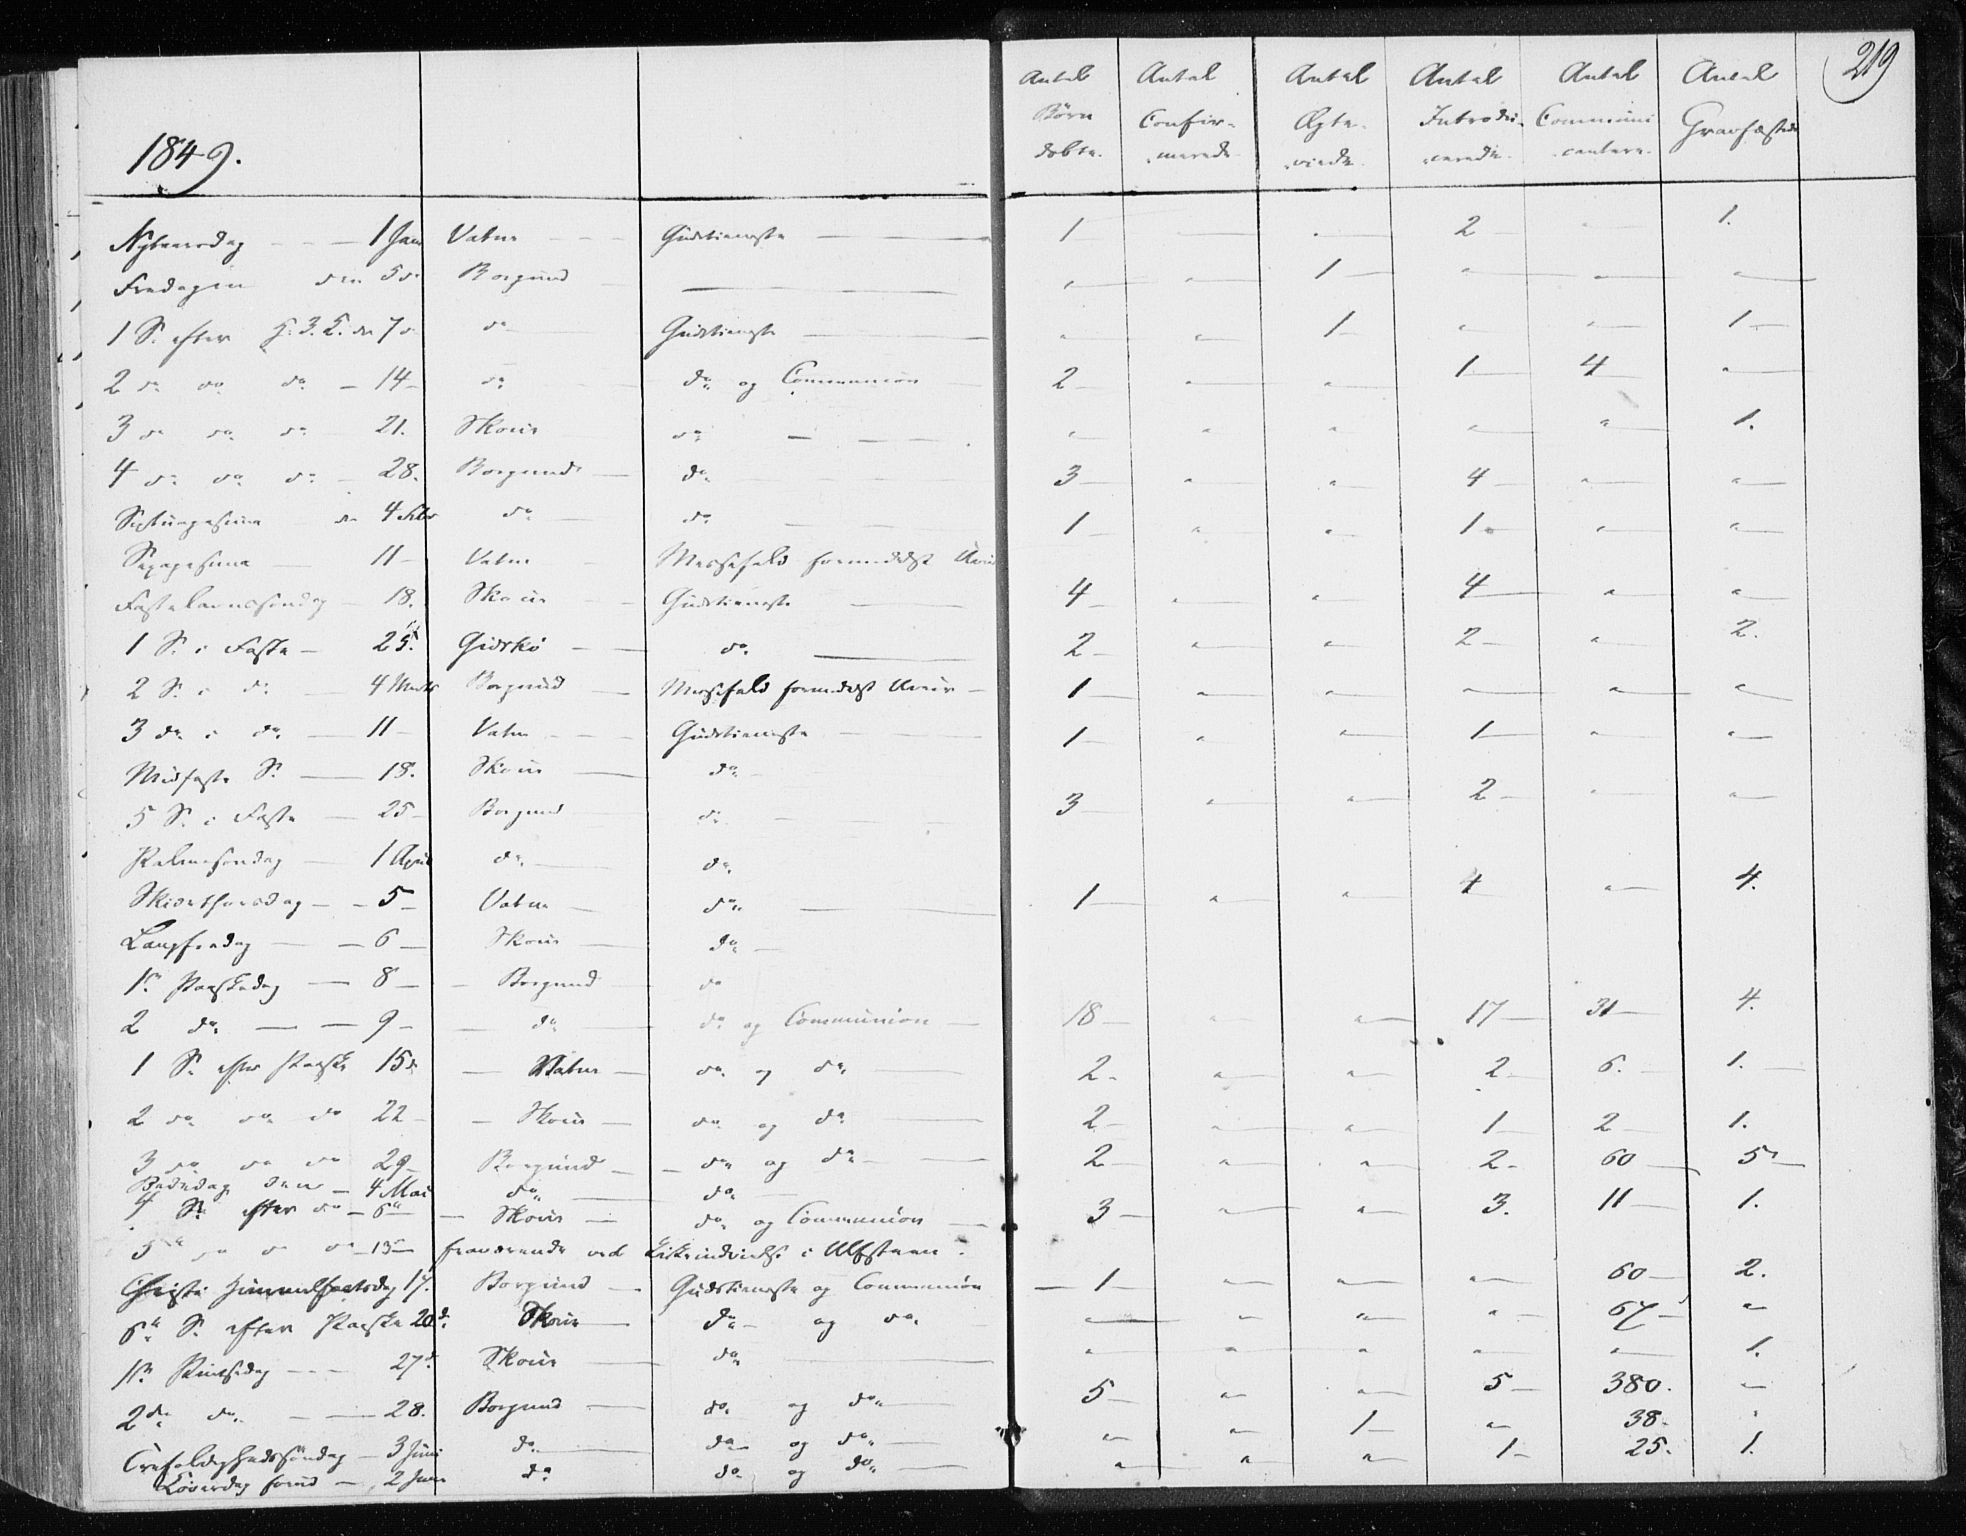 219
1849.
Antal Børn døbte. Antal Confir- merede Antal Ægte- viede. Antal Introdu- cerede. Antal Communi canter. Antal Gravfæstede
Nytaarsdag - - - 1 Jan Vatne - - Gudstieneste 1 — „ 2 „ 1.
Fredagen den 5 do Borgund — „ „ 1 „ „ „
1 S. efter H. 3. K. den 7 do Gudstieneste „ „ 1 „ „ 1
2 do do do - 14 - do do og Communion 2 „ „ 1 4 „
3 do do do - 21. Skous do „ „ „ „ „ 1.
4 do do do - 28. Borgund do 3 „ „ 4 „ „
Septuagesima den 4 Febr do do 1 „ „ 1 „ „
Sexagesima — 11 - Vatne Messefald formedelst Uveir
Fastelavnssøndag - 18. Skous Gudstieneste 4 „ „ 4 „ „
1 S. i Faste - 25. Gidskø do. 2 „ „ 2 „ 2.
2 S. i do — 4 Marts Borgund Messefald formedelst Uveir - 1 „ „ „ „ „
3 do i do — 11 - Vatne Gudstieneste 1 „ „ 1 „ „
Midfaste S. — 18. Skous do
5 S. i Faste — 25 - Borgund do 3 „ „ 2 „ „
Palmesøndag — 1 April do. do.
Skiærthorsdag - - 5 - Vatne do. 1 „ „ 4 „ 4.
Langfredag — 6 - Skous do
1ste Paaskedag — 8 - Borgund do
2 do. — 9 - do do og Communion 18 „ „ 17 31 4.
1 S. efter Paaske 15 do Vatne do og do. 2 „ „ 2 6. 1.
2 do do do 22 - Skous do og do 2 „ „ 1 2 1.
3 do do do 29 Borgund do og do 2 „ „ 2 60 5
Bededag den - 4 Mai do do
4 S. efter do - 6te Skous do og Communion 3 „ „ 3. 11 1.
5 do do do 13 fraværende ved Kirkeindvielse i Ulfsteen.
Christi Himmelfartsdag 17. Borgund Gudstieneste og Communion 1 „ „ „ 60 2.
6te S. efter Paaske 20d. Skous do og do. „ „ „ „ 67 „
1ste Pintsedag - - - 27d. Skous do „ „ „ „ „ 1.
2den do. — 28. Borgund do og do 5 „ „ 5 380. „
Trefoldighedssøndag - 3 Juni do do og do „ „ 1 „ 38 „
Løverdag forud - 2 Juni do do og do „ „ „ 1 25. 1.